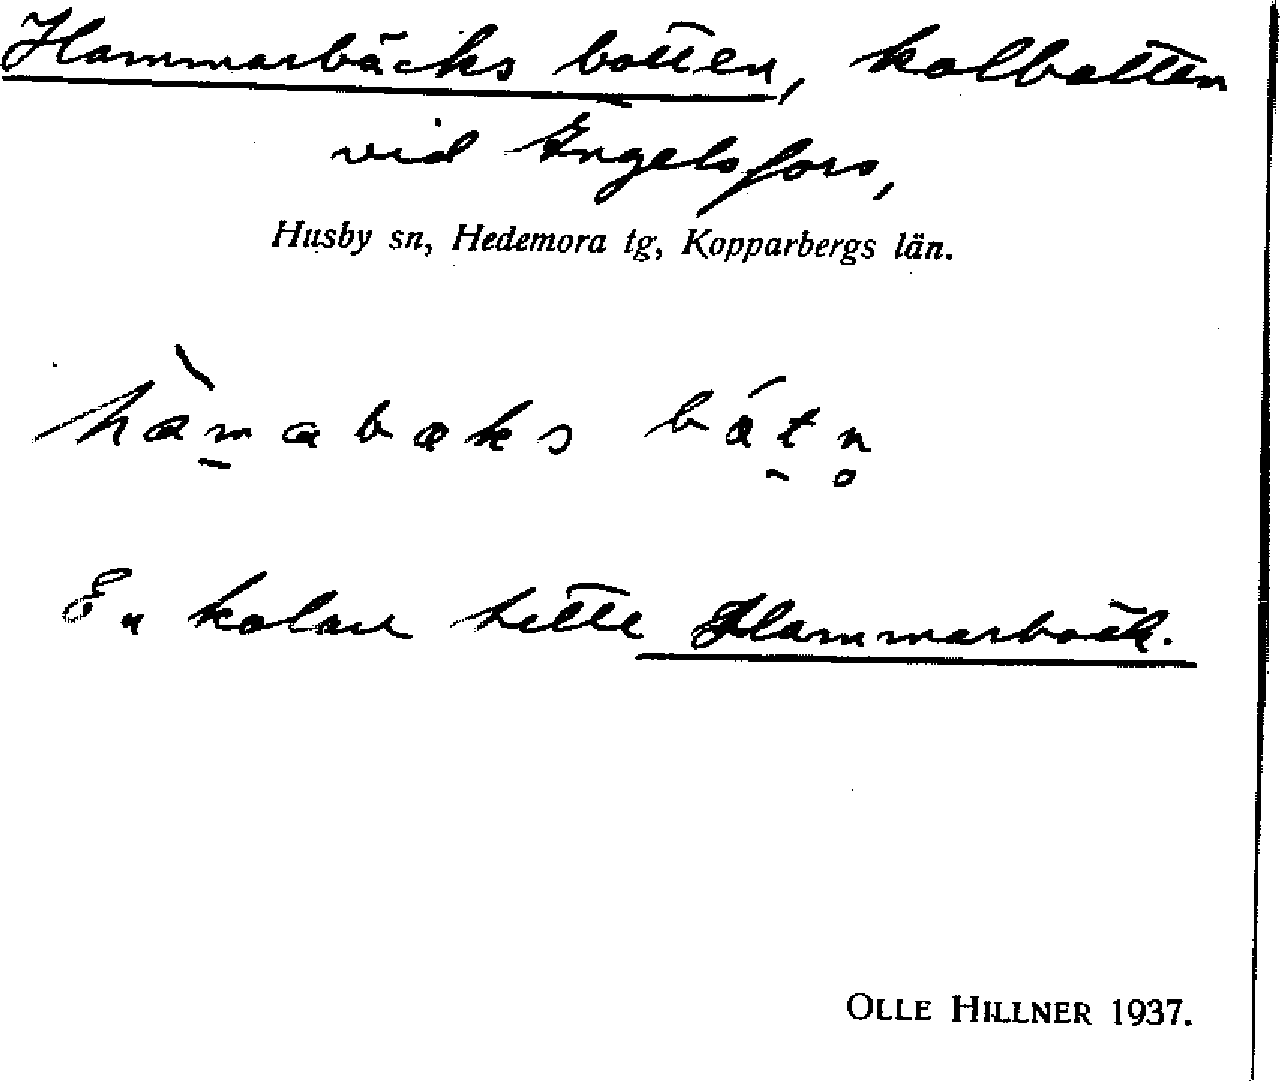 Hammarbäcks botten, kolbotten
vid Engelsfors,
Husby sn, Hedemora tg, Kopparbergs län.
hàmabaks bátn̥
En kolare hette Hammarbäck.
OLLE HILLNER 1937.